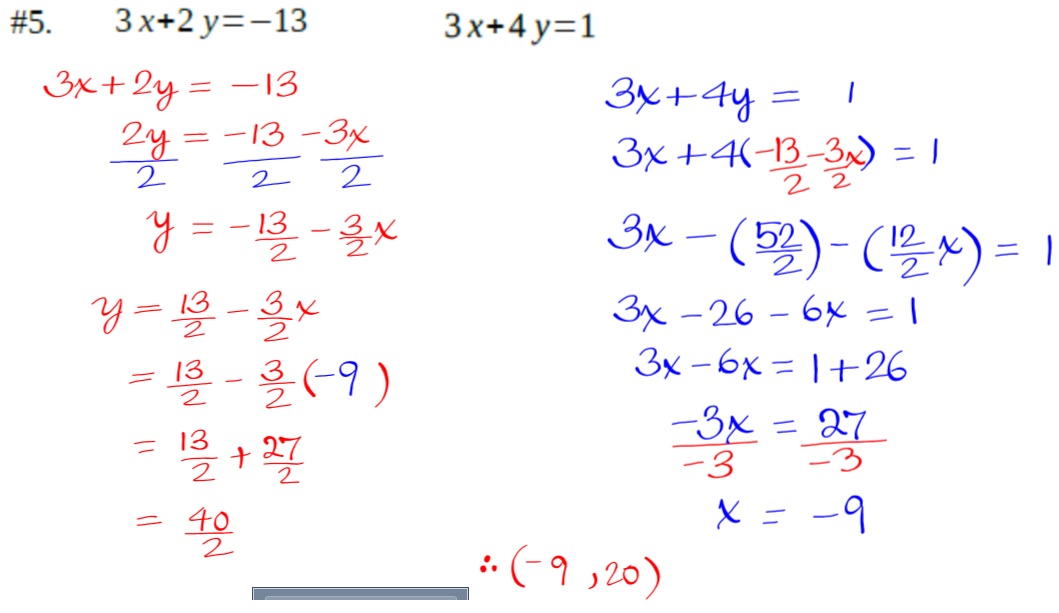 #5. 3x+2y=−13 3x+4y=1
3x+2y = −13
2y/2 = −13/2 −3x/2
y = −13/2 − 3/2 x
y = 13/2 − 3/2 x
= 13/2 − 3/2 (−9)
= 13/2 + 27/2
= 40/2
3x+4y = 1
3x+4(−13/2 −3x/2) = 1
3x − (52/2) − (12/2 x) = 1
3x − 26 − 6x = 1
3x − 6x = 1+26
−3x/−3 = 27/−3
x = −9
∴ (−9, 20)